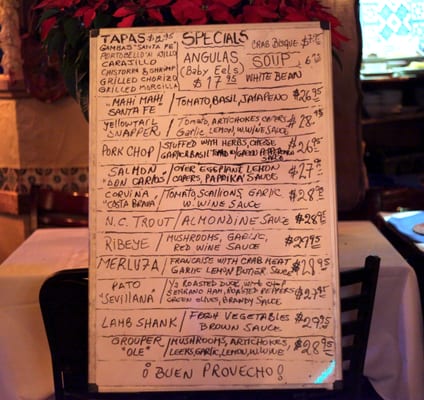 TAPAS $12.95
GAMBAS "SANTA FE"
PORTOBELLO N
CARASILLO
CHISTORRA & SHRIMP
GRILLED CHORIZO
GRILLED MORCILLA
SPECIALS
ANGULAS
(Baby Eels)
$17.95
CRAB BISQUE $7.95
SOUP 6.95
WHITE BEAN
"MAHI MAHI / TOMATO, BASIL, JALAPEÑO $26.95
SANTA FE
YELLOWTAIL / TOMATO, ARTICHOKES, CAPERS $28.95
SNAPPER GARLIC, LEMON, W. WINE SAUCE
PORK CHOP / STUFFED WITH HERBS, CHEESE $26.95
GARLIC & BASIL GREEN PEPPERCORN SAUCE
SALMON / OVER EGGPLANT LEMON $27.95
"DON CARLOS" CAPERS, PAPRIKA SAUCE
CORVINA / TOMATO, SCALLIONS, GARLIC $28.95
"COSTA BRAVA" W. WINE SAUCE
N.C. TROUT / ALMONDINE SAUZ $28.95
RIBEYE / MUSHROOMS, GARLIC, $29.95
RED WINE SAUCE
MERLUZA / FRANCAISE WITH CRAB MEAT $29.95
GARLIC LEMON BUTTER SAUCE
PATO / 1/2 ROASTED DUCK, WITH CHOP $27.95
"SEVILLANA" SERRANO HAM, ROASTED PEPPERS
GREEN OLIVES, BRANDY SAUCE
LAMB SHANK / FRESH VEGETABLES $29.95
BROWN SAUCE
GROUPER / MUSHROOMS, ARTICHOKES, $28.95
"OLE" LEEKS, GARLIC, LEMON, W. WINE
¡ BUEN PROVECHO !